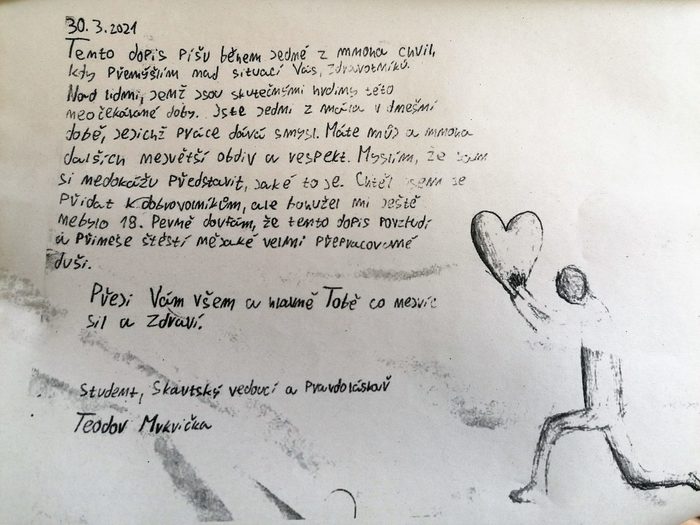 30.3.2021
Tento dopis píšu během jedné z mnoha chvil,
kdy přemýšlím nad situací Vás, zdravotníků.
Nad lidmi, jenž jsou skutečnými hrdiny této
neočekávané doby. Jste jedni z mála v dnešní
době, jejichž práce dává smysl. Máte můj a mnoha
dalších největší obdiv a respekt. Myslím, že
si nedokážu představit, jaké to je. Chtěl jsem se
přidat k dobrovolníkům, ale bohužel mi ještě
nebylo 18. Pevně doufám, že tento dopis povzbudí
a přinese štěstí nějaké velmi přepracované
duši.
Přeji Vám všem a hlavně Tobě co nejvíc
sil a zdraví.
Student, Skautský vedoucí a Pravdoláskař
Teodor Mrkvička